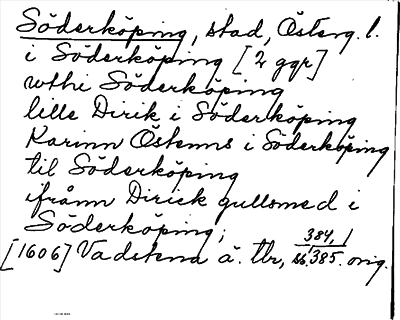 Söderköping, stad, Österg. l.
i Söderköping [2 ggr]
wthi Söderköping
lille Dirik i Söderköping
Karinn Östenns i Söderköping
til Söderköping
ifrånn Dirick gullsmed i
Söderköping;
[1606] Vadstena ä. tbr, sb. 384, 1
385. orig.